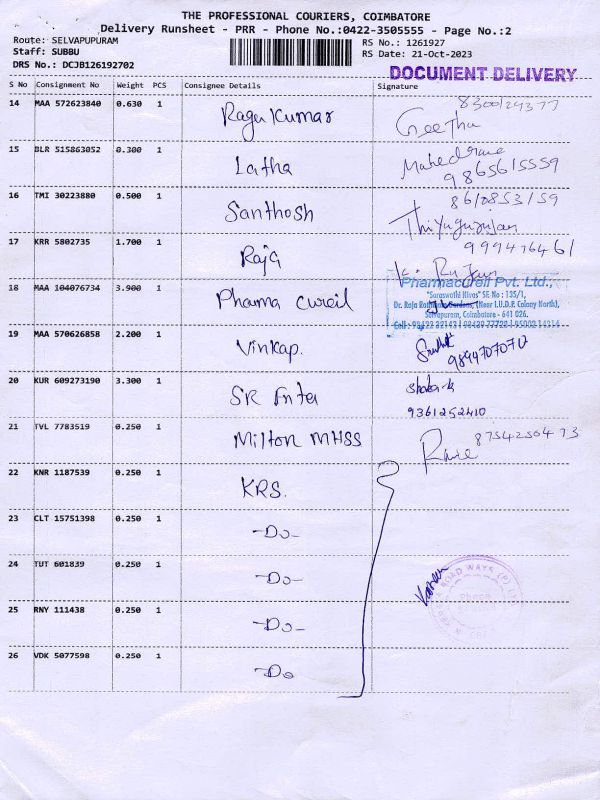 THE PROFESSIONAL COURIERS, COIMBATORE
Delivery Runsheet - PRR - Phone No.:0422-3505555 - Page No.:2
Route: SELVAPUPURAM
RS No.: 1261927
Staff: SUBBU
RS Date: 21-Oct-2023
DRS No.: DCJB126192702
DOCUMENT DELIVERY
S No Consignment No Weight PCS Consignee Details Signature
14 MAA 572623840 0.630 1 Ragu Kumar Geetha
15 BLR 515863052 0.300 1 Latha
9865615559
16 TMI 30223880 0.500 1 Santhosh 8610853159
17 KRR 5802735 1.700 1 RajG
18 MAA 104076734 3.900 1 Pharma cureil
Pharmacureil Pvt. Ltd.,
"Saraswathi Nivas" SF. No : 135/1,
Gardens, (Near I.U.D.P. Colony North),
Selvapuram, Coimbatore - 641 026.
Cell : 98422 32143 98439 77728 95002 14314
19 MAA 570626858 2.200 1 Vinkap.
9894707070
20 KUR 609273190 3.300 1 SR Enter
9361252410
21 TVL 7783519 0.250 1 Milton MHSS 8754250473
22 KNR 1187539 0.250 1 KRS.
23 CLT 15751398 0.250 1 -Do-
24 TUT 601839 0.250 1 -Do-
ROAD WAYS (P)
25 RNY 111438 0.250 1 -Do-
26 VDK 5077598 0.250 1 -Do